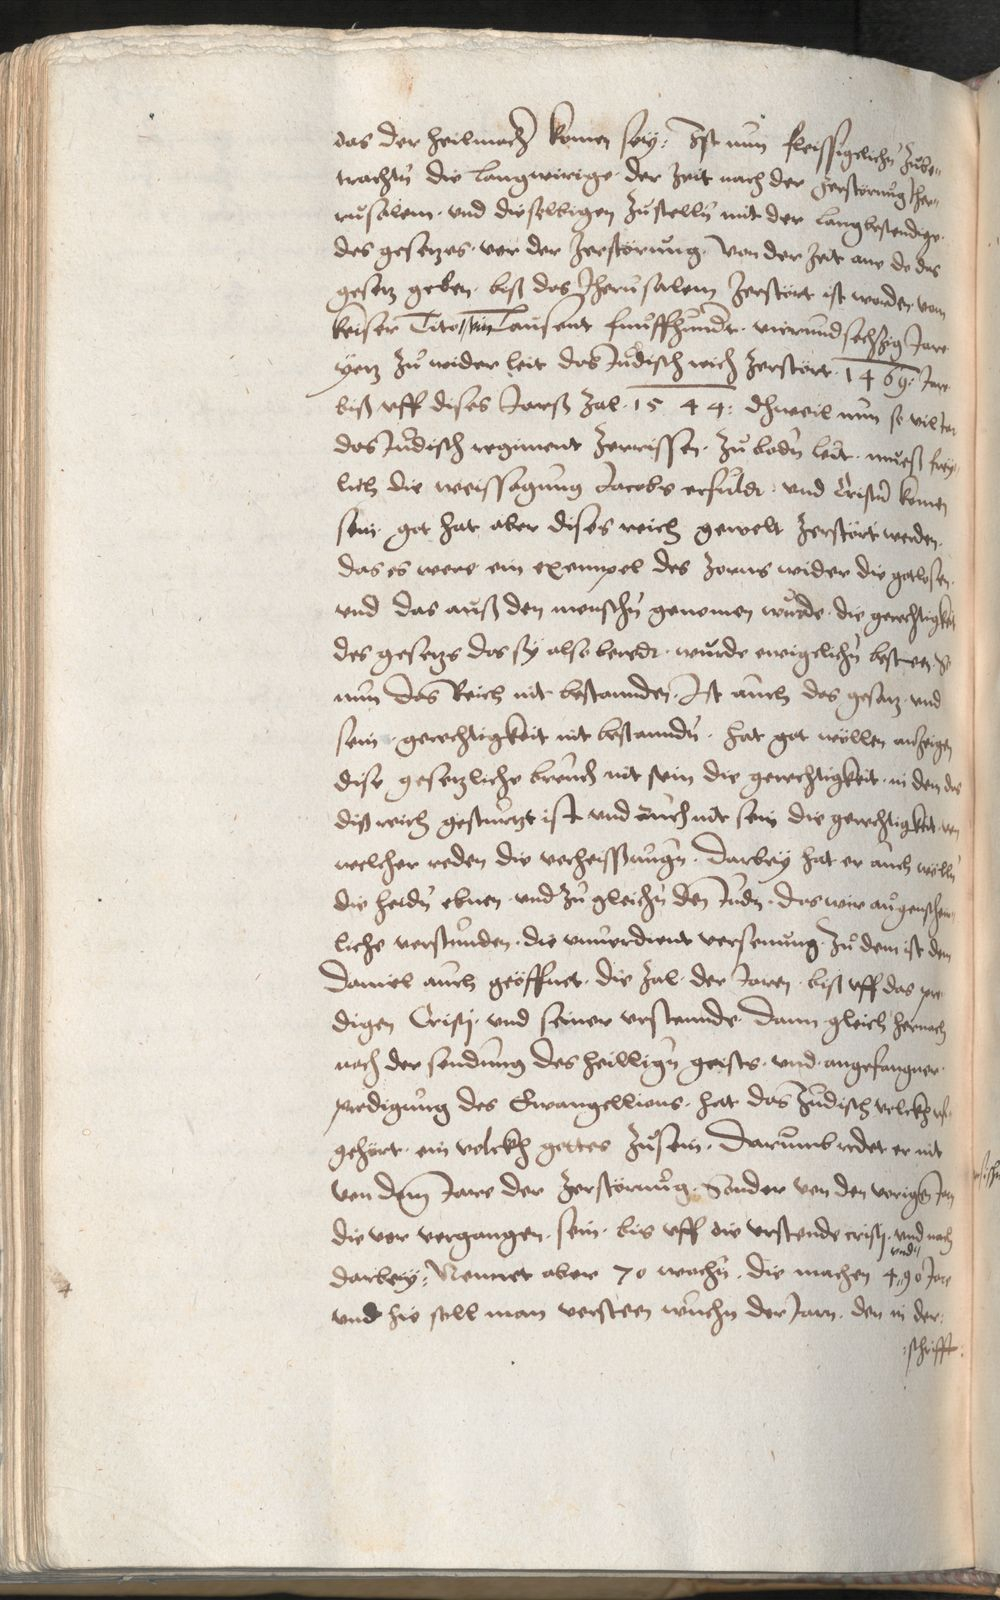 das der heilmach komen sey: Ist nun fleissigelichn zube-
trachtn die langwirige der Zeit nach der Zerstörung Jher-
rusalem. vnd dieselbigen zustelln mit der langbestendige
des gesetzes vor der Zerstörung. Von der Zeit ane do das
gesetz geben. biß das Jherusalem Zerstört ist worden vom
keiser Tito sein Tausent funffhundt. vierundsechzig Jare
yetz zu wider leit das Judisch reich Zerstört. 1469: Jare
biß vff dises Jarß Zal. 1544: dhweil nun so vil Jar
das Judisch regiment Zerrissen. zu bodn leit. mueß frey-
lich die weissagung Jacobs erfuldt. vnd Cristus komen
sein. got hat aber dises reich gewelt Zerstört werden.
das es were ein exempel des Zorns wider die gotlosen.
vnd das auß den menschn genomen wurde. die gerechtigkeit
des gesetzs das sy also beredt. wurde ewigelichn besteen. So
nun das Reich nit bestannden. Ist auch das gesatz vnd
sein gerechtigkeit nit bestanndn. hat got wöllen anzeigen
dise gesetzliche breuch nit sein die gerechtigkeit. in dem das
diß reich gesturtzt ist vnd auch nit sein die gerechtigkeit von
welcher reden die verheissungn. Darbey hat er auch wölln
die heidn ebnen vnd zu gleichn den Judn. das wir augenschein-
liche verstunden. die vnuerdient versenung. zu dem ist dem
Daniel auch geöffnet. die Zal der Jaren. biß vff das pre-
digen Cristj. vnd seiner vrstennde. Dann gleich hernach
nach der sendung des heillign geists. vnd angefangner.
predigung des Ewangellions. hat das Judisch volckh vf-
gehört. ein volckh gottes zu sein. Darumb redet er nit
von dem Jare der Zerstörung. Sonder von den vorigen Jarn
die vor vergangen. sein. bis vff die vrstende cristj. vnd nach
vnd
darbey: Nennet aber 70 wochn. die machen 4,,90 Jare
vnd hie soll man versteen wuchn der Jarn. den in der:
:schrifft: